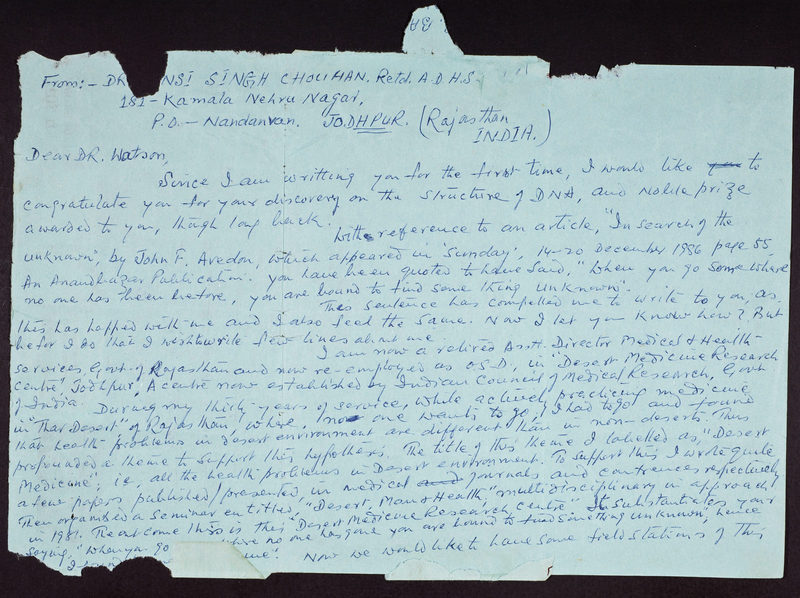 From:- DR NSI SINGH CHOUHAN. Retd. A D H S
181- Kamala Nehru Nagar,
P.O.- Nandanvan. JODHPUR. (Rajasthan
INDIA.)
Dear DR. Watson,
Since I am writting you for the first time, I would like to
congratulate you for your discovery on the structure of DNA, and Noble prize
awarded to you, though long back.
With reference to an article, "In search of the
unknown", by John F. Avedon, which appeared in 'Sunday', 14-20 December 1986 page 55.
An Anandbazar Publication. you have been quoted to have said, "When you go some where
no one has been before, you are bound to find some thing unknown".
This sentence has compelled me to write to you, as
this has happed with me and I also feel the same. Now I let you know how? But
before I do that I wish to write few lines about me.
I am now a retired Asstt. Director Medical & Health
services Govt. of Rajasthan and now re-employed as O.S.D. in "Desert Medicine Research
centre" Jodhpur, A centre now established by Indian Council of Medical Research, Govt
of India. During my thirty years of service, while actively practicing medicine
in "Thar Desert" of Rajasthan, where, no one wants to go, I had to go and found
that health problems in desert environment are different than in non-deserts. Thus
profounded a theme to support this hypothesis. The title of this theme I labelled as, "Desert
Medicine", i.e. all the health problems in Desert environment. To support this I wrote quite
a few papers published/presented in medical journals and confrences respectively
Then organised a seminar entitled, "Desert, Man & Health," multidisciplinary in approach
in 1981. The out come this is this "Desert Medicine Research Centre". It substantiates your
saying, "When you go where no one has gone you are bound to find some thing unknown", hence
me". Now we would like to have some field stations of this